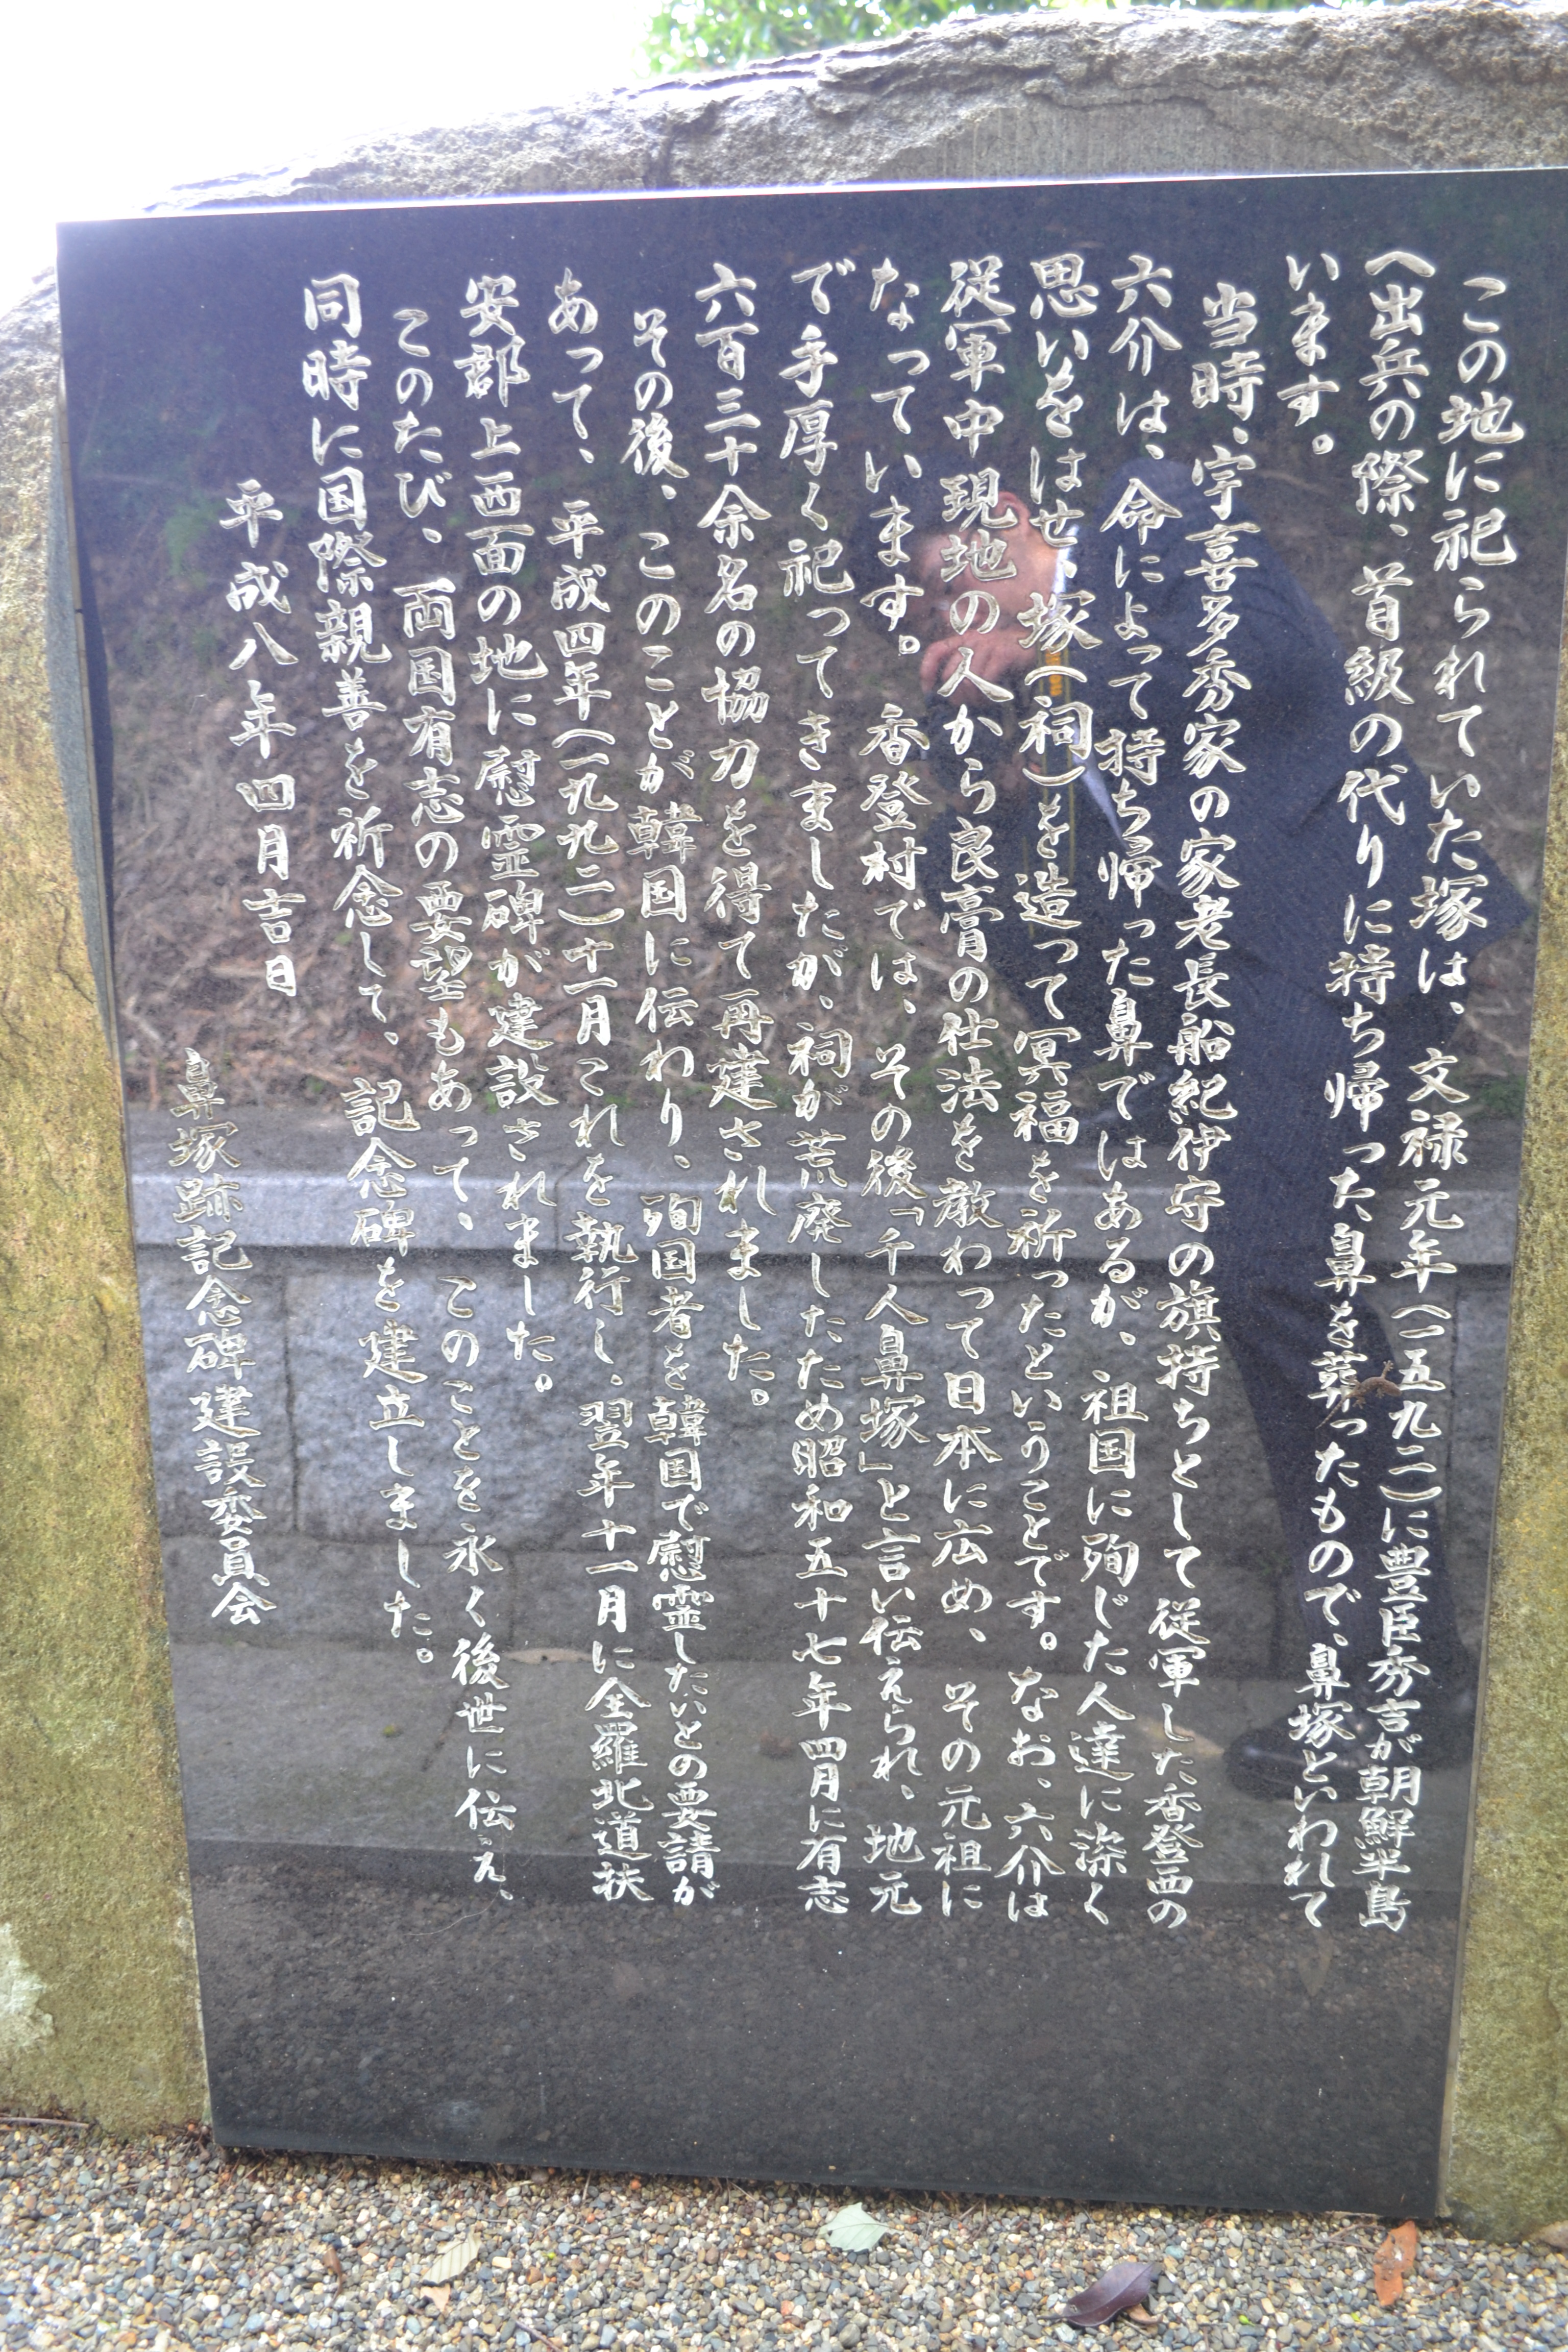 この地に祀られていた塚は、文禄元年(一五九二)に豊臣秀吉が朝鮮半島
へ出兵の際、首級の代りに持ち帰った鼻を葬ったもので、鼻塚といわれて
います。
当時、宇喜多秀家の家老長船紀伊守の旗持ちとして従軍した香登西の
六介は、命によって持ち帰った鼻ではあるが、祖国に殉じた人達に深く
思いをはせ、塚(祠)を造って冥福を祈ったということです。なお、六介は
従軍中現地の人から良膏の仕法を教わって日本に広め、その元祖に
なっています。香登村では、その後「千人鼻塚」と言い伝えられ、地元
で手厚く祀ってきましたが、祠が荒廃したため昭和五十七年四月に有志
六百三十余名の協力を得て再建されました。
その後、このことが韓国に伝わり、殉国者を韓国で慰霊したいとの要請が
あって、平成四年(一九九二)十一月これを執行し、翌年十一月に全羅北道扶
安郡上西面の地に慰霊碑が建設されました。
このたび、両国有志の要望もあって、このことを永く後世に伝え、
同時に国際親善を祈念して、記念碑を建立しました。
平成八年四月吉日
鼻塚跡記念碑建設委員会